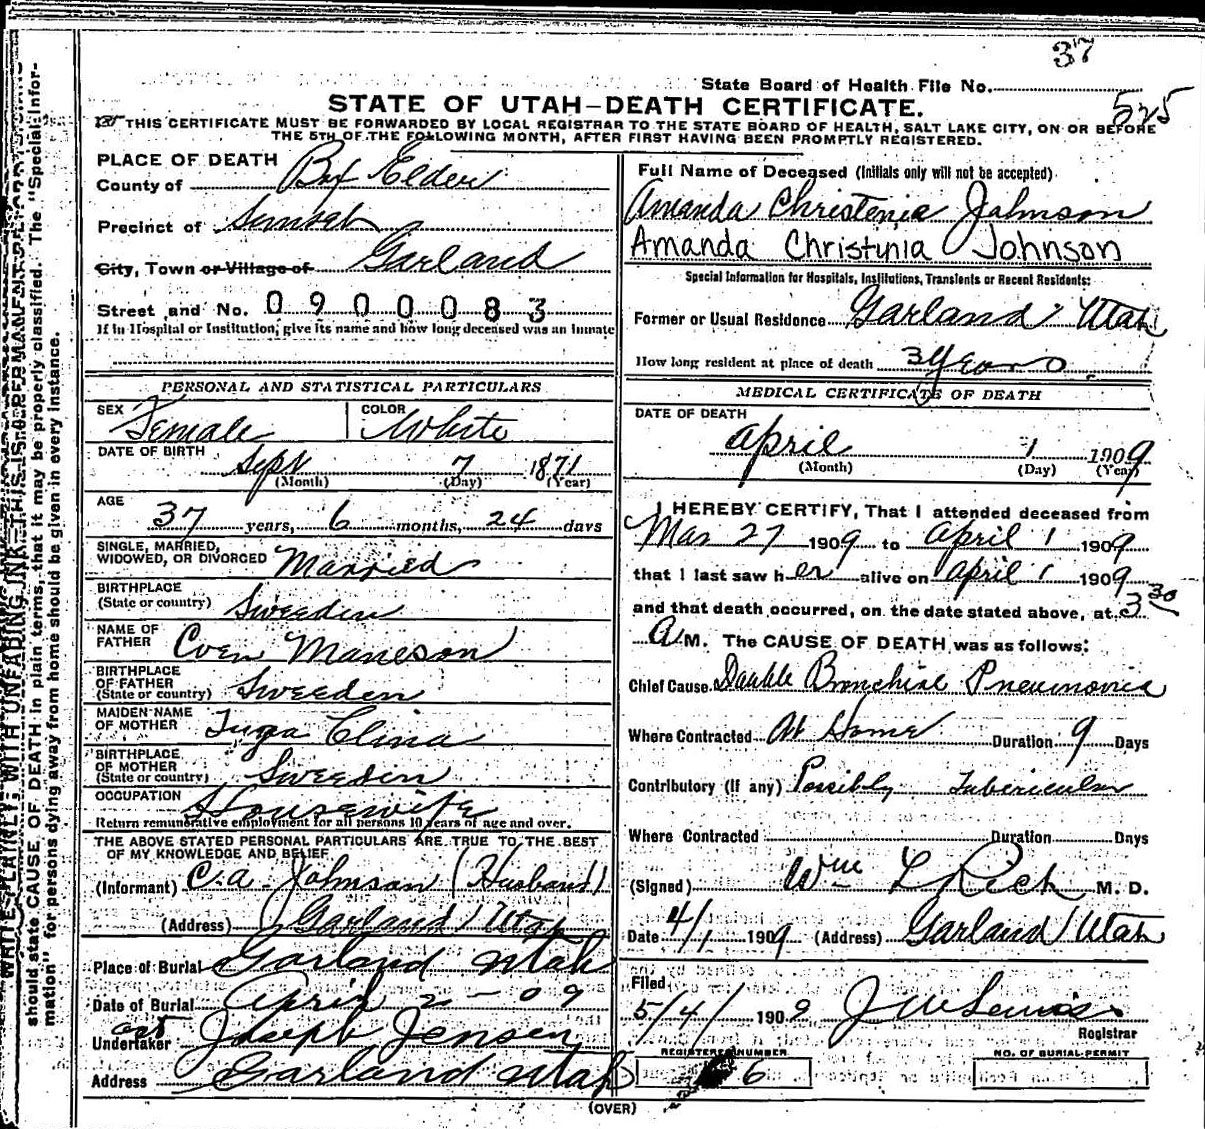 37
State Board of Health File No.
525
STATE OF UTAH—DEATH CERTIFICATE.
THIS CERTIFICATE MUST BE FORWARDED BY LOCAL REGISTRAR TO THE STATE BOARD OF HEALTH, SALT LAKE CITY, ON OR BEFORE
THE 5TH OF THE FOLLOWING MONTH, AFTER FIRST HAVING BEEN PROMPTLY REGISTERED.
WRITE PLAINLY, WITH UNFADING INK—THIS IS A PERMANENT
should state CAUSE OF DEATH in plain terms, that it may be properly classified. The "Special Infor-
mation" for persons dying away from home should be given in every instance.
PLACE OF DEATH
County of Box Elder
Precinct of Sunset
City, Town or Village of Garland
Street and No. 0900083
If in Hospital or Institution, give its name and how long deceased was an inmate
PERSONAL AND STATISTICAL PARTICULARS
SEX Female COLOR White
DATE OF BIRTH Sept 7 1871
(Month) (Day) (Year)
AGE
37 years, 6 months, 24 days
SINGLE, MARRIED,
WIDOWED, OR DIVORCED Married
BIRTHPLACE
(State or country) Sweeden
NAME OF
FATHER Cven Maneson
BIRTHPLACE
OF FATHER
(State or country) Sweeden
MAIDEN NAME
OF MOTHER Inga Elina
BIRTHPLACE
OF MOTHER
(State or country) Sweedin
OCCUPATION Housewife
Return remunerative employment for all persons 10 years of age and over.
THE ABOVE STATED PERSONAL PARTICULARS ARE TRUE TO THE BEST
OF MY KNOWLEDGE AND BELIEF
(Informant) C. A. Johnson (Husband)
(Address) Garland Utah
Place of Burial Garland Utah
Date of Burial April 2-09
Undertaker Joseph Jensen
Address Garland Utah
Full Name of Deceased (Initials only will not be accepted)
Amanda Christenia Johnson
Amanda Christinia Johnson
Special Information for Hospitals, Institutions, Transients or Recent Residents:
Former or Usual Residence Garland Utah
How long resident at place of death 3 years
MEDICAL CERTIFICATE OF DEATH
DATE OF DEATH
April 1 1909
(Month) (Day) (Year)
I HEREBY CERTIFY, That I attended deceased from
Mar 27 1909 to April 1 1909
that I last saw her alive on April 1 1909
and that death occurred, on the date stated above, at 3 30
A M. The CAUSE OF DEATH was as follows:
Chief Cause Double Bronchial Pneumonia
Where Contracted At Home Duration 9 Days
Contributory (if any) Possibly Tubericular
Where Contracted Duration Days
(Signed) Wm L Rich M. D.
Date 4/1 1909 (Address) Garland Utah
Filed
5/4/ 1909 J W Lewis
Registrar
REGISTERED NUMBER NO. OF BURIAL PERMIT
6
(OVER)